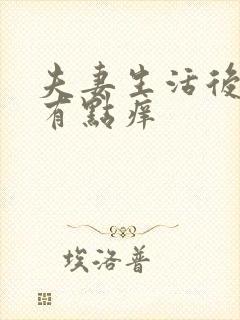 夫妻生活後
有點痒
埃洛普